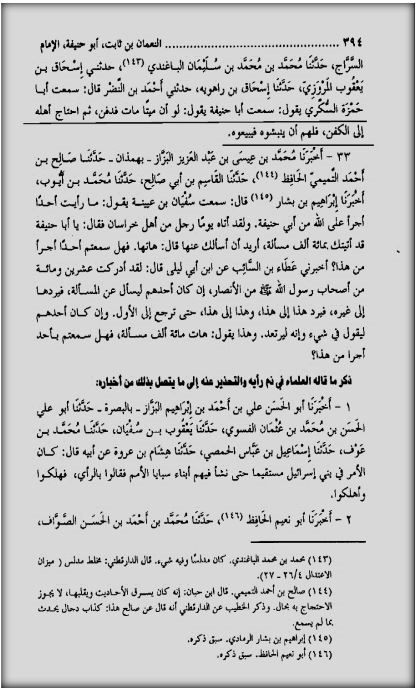 ٣٩٤ ............................................ النعمان بن ثابت، أبو حنيفة، الإمام
السَّرَّاج، حَدَّثَنَا مُحَمَّد بن مُحَمَّد بن سُلَيْمَان الباغندي (١٤٣)، حدثني إِسْحَاق بن
يَعْقُوب المَرْوَزِيّ، حَدَّثَنَا إِسْحَاق بن راهويه، حدثني أَحْمَد بن النَّضْر قال: سمعت أبا
حَمْزَة السُّكَّرِي يقول: سمعت أبا حنيفة يقول: لو أن ميتًا مات فدفن، ثم احتاج أهله
إلى الكفن، فلهم أن ينبشوه فيبيعوه.
٣٣ - أَخْبَرَنَا مُحَمَّد بن عِيسَى بن عَبْد العَزِيز البَزَّاز - بهمذان - حَدَّثَنَا صَالِح بن
أَحْمَد التَّمِيمِيّ الحَافِظ (١٤٤)، حَدَّثَنَا القَاسِم بن أبي صَالِح، حَدَّثَنَا مُحَمَّد بن أَيُّوب،
أَخْبَرَنَا إِبْرَاهِيم بن بشار (١٤٥) قال: سمعت سُفْيَان بن عيينة يقول: ما رأيت أحدًا
أجرأ على الله من أبي حنيفة. ولقد أتاه يومًا رجل من أهل خراسان فقال: يا أبا حنيفة
قد أتيتك بمائة ألف مسألة، أريد أن أسألك عنها قال: هاتها. فهل سمعتم أحدًا أجرأ
من هذا؟ أخبرني عَطَاء بن السَّائِب عن ابن أبي ليلى قال: لقد أدركت عشرين ومائة
من أصحاب رسول الله ﷺ من الأنصار، إن كان أحدهم ليسأل عن المسألة، فيردها
إلى غيره، فيرد هذا إلى هذا، وهذا إلى هذا، حتى ترجع إلى الأول. وإن كان أحدهم
ليقول في شيء وإنه ليرتعد. وهذا يقول: هات مائة ألف مسألة، فهل سمعتم بأحد
أجرا من هذا؟
ذكر ما قاله العلماء في ذم رأيه والتحذير عنه إلى ما يتصل بذلك من أخباره:
١ - أَخْبَرَنَا أبو الحَسَن علي بن أَحْمَد بن إِبْرَاهِيم البَزَّاز - بالبصرة - حَدَّثَنَا أبو علي
الحَسَن بن مُحَمَّد بن عُثْمَان الفسوي، حَدَّثَنَا يَعْقُوب بن سُفْيَان، حَدَّثَنَا مُحَمَّد بن
عَوْف، حَدَّثَنَا إِسْمَاعِيل بن عَبَّاس الحمصي، حَدَّثَنَا هِشَام بن عروة عن أبيه قال: كان
الأمر في بني إسرائيل مستقيما حتى نشأ فيهم أبناء سبايا الأمم فقالوا بالرأي، فهلكوا
وأهلكوا.
٢ - أَخْبَرَنَا أبو نعيم الحَافِظ (١٤٦)، حَدَّثَنَا مُحَمَّد بن أَحْمَد بن الحَسَن الصَّوَّاف،
(١٤٣) محمد بن محمد الباغندي. كان مدلسًا وفيه شيء. قال الدارقطني: مخلط مدلس ( ميزان
الاعتدال ٢٦/٤ - ٢٧).
(١٤٤) صالح بن أحمد التميمي. قال ابن حبان: إنه كان يسرق الأحاديث ويقلبها، لا يجوز
الاحتجاج به بحال. وذكر الخطيب عن الدارقطني أنه قال عن صالح هذا: كذاب دجال يحدث
بما لم يسمع.
(١٤٥) إبراهيم بن بشار الرمادي. سبق ذكره.
(١٤٦) أبو نعيم الحافظ. سبق ذكره.